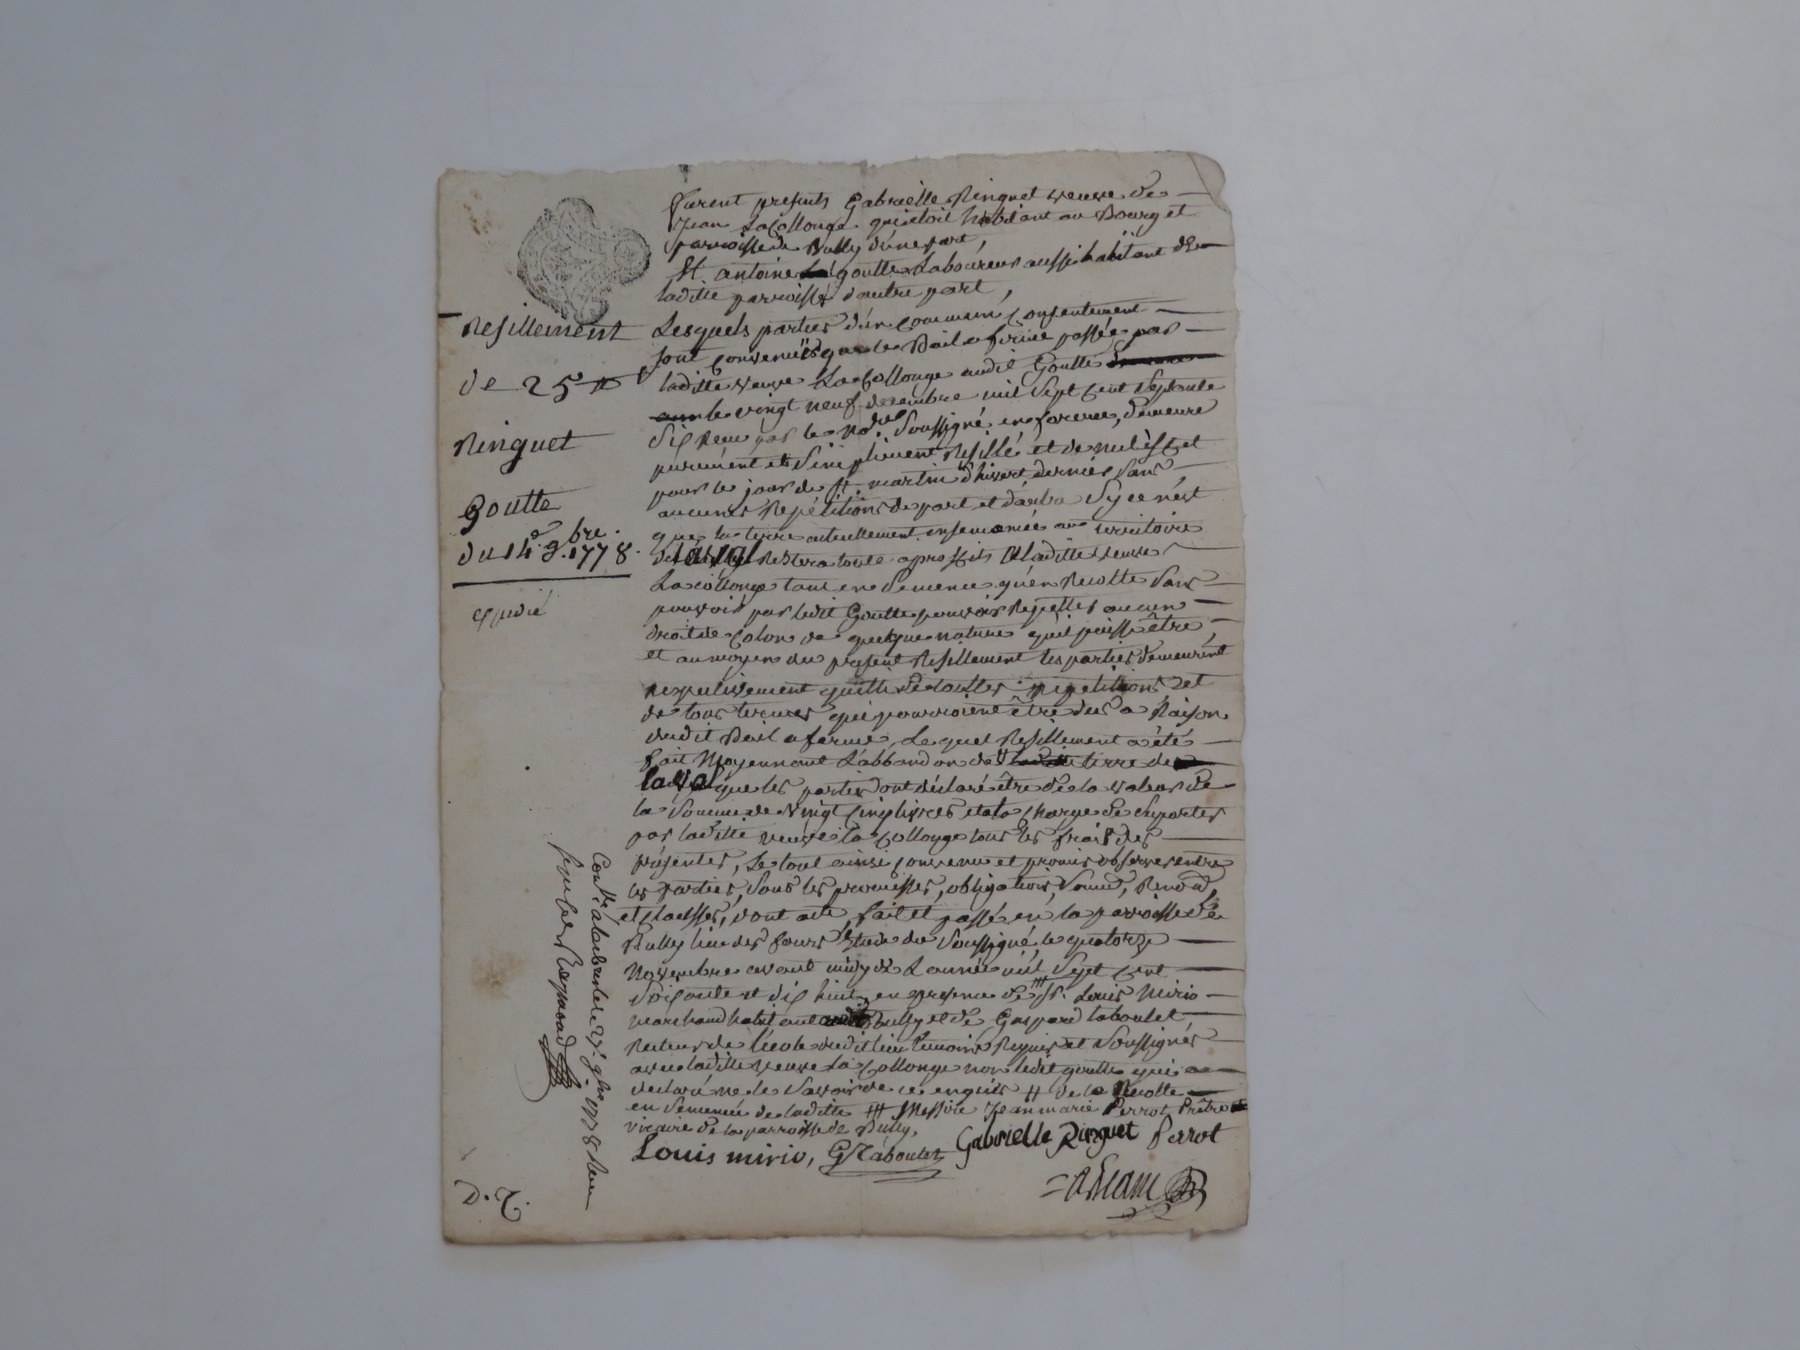 furent presents Gabrielle Ringuet veuve de
Jean La Collonge qui etoit habitant au Bourg et
parroisse de Bully d'une part,
St antoine goutte Laboureur aussi habitant de
laditte parroisse d'autre part,
Resillement
Lesquels parties d'un commun consentement
sont convenues que le Bail a ferme passée par
de 25 ₶
laditte veuve La Collonge audit Goutte
le vingt neuf decembre mil sept cent septante
six Receu par le no.re soussigné en forme, demeure
Ringuet
purement et simplement Resillé et de nul effet
pour le jour de St. martin d'hivert dernier sans
Goutte
aucunes Repétitions de part et d'autre Sy ce n'est
que la terre actuellement ensemancée au territoire
du 14e 9.bre 1778.
de laval Restera toute a proffit de laditte veuve
La collonge tant en Semence qu'en Recolte sans
expedié
pouvoir par ledit Goutte pouvoir Repetter aucun
droit de Colon de quelque nature qu'il puisse être,
et au moyen du present Resillement les parties demeurent
respectivement quitte de touttes repetitions et
de tous termes qui pourroient être dus a Raison
dudit Bail a ferme, Lequel Resillement a été
fait Moyennant L'abbandon de terre de
laval que les parties ont déclaré être de la valeur de
la Somme de vingt cinq livres et a la charge de suporter
par laditte veuve la Collonge tous les frais des
présentes, Le tout ainsi convenu et promis observer entre
les parties, sous les promesses, obligations, soumis.s, Renon.s,
et clauses, dont acte, fait et passé en la parroisse de
Bully lieu des fours Etude du Soussigné le quatorze
Novembre avant midy de L'année mil Sept cent
Soixante et dix huit, en presence de ⧻ Sr. Louis Mirio
marchand habitant Bully et de Gaspard taboulet
Recteur de l'école dudit lieu temoins Requis et Soussignés
avec laditte veuve La Collonge non ledit goutte qui a
declaré ne le Savoir de ce enquis ⧺ de la Recolte
en Semence de laditte ⧻ Messire Jean marie Perrot Prêtre
vicaire de la parroisse de Bully.
Louis mirio, G Taboulet
Gabrielle Ringuet Perrot
Con.lé a l'arbresle le 27e. 9bre. 1778 Receu
D. T.